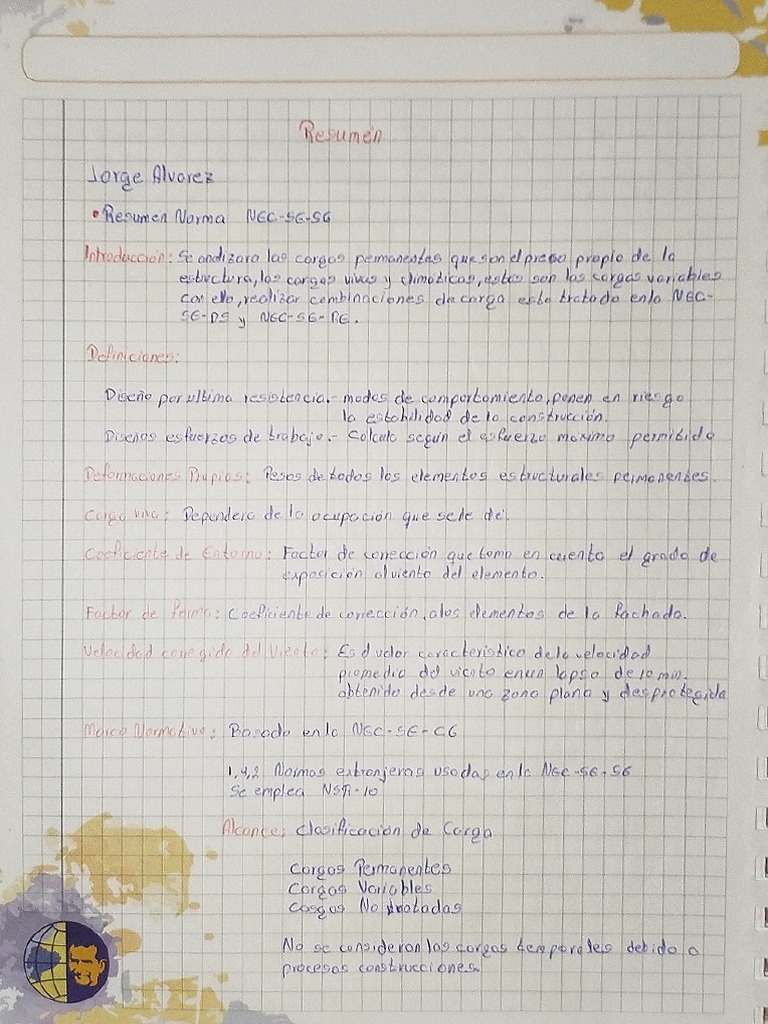 Resumen
Jorge Alvarez
• Resumen Norma NEC-SE-SG
Introducción: Se analizara las cargas permanentes que son el preso propio de la
estructura, las cargas vivas y climaticas, estas son las cargas variables
con ello, realizar combinaciones de carga esto tratado en la NEC-
SE-DS y NEC-SE-RE.
Definiciones:
Diseño por ultima resistencia.- modos de comportamiento, ponen en riesgo
la estabilidad de la construcción.
Diseños esfuerzos de trabajo.- Calculo según el esfuerzo maximo permitido
Deformaciones Propias: Pesos de todos los elementos estructurales permanentes.
Carga viva: Dependera de la ocupación que se le de.
Coeficiente de Entorno: Factor de corrección que toma en cuenta el grado de
exposición al viento del elemento.
Factor de forma: Coeficiente de corrección, a los elementos de la fachada.
Velocidad corregida del Viento: Es el valor caracteristico de la velocidad
promedio del viento en un lapso de 10 min.
obtenido desde una zona plana y desprotegida
Marco Normativo: Basado en la NEC-SE-CG
1,4,2 Normas extranjeras usadas en la NEC-SE-SG
Se emplea NSR-10
Alcance: Clasificación de Carga
Cargas Permanentes
Cargas Variables
Cargas No tratadas
No se consideran las cargas temporales debido a
procesos construcciones.